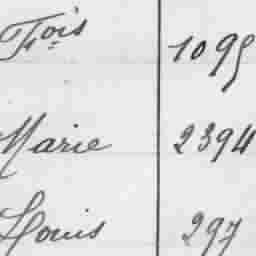 Fois 1095
Marie 2394
Louis 297